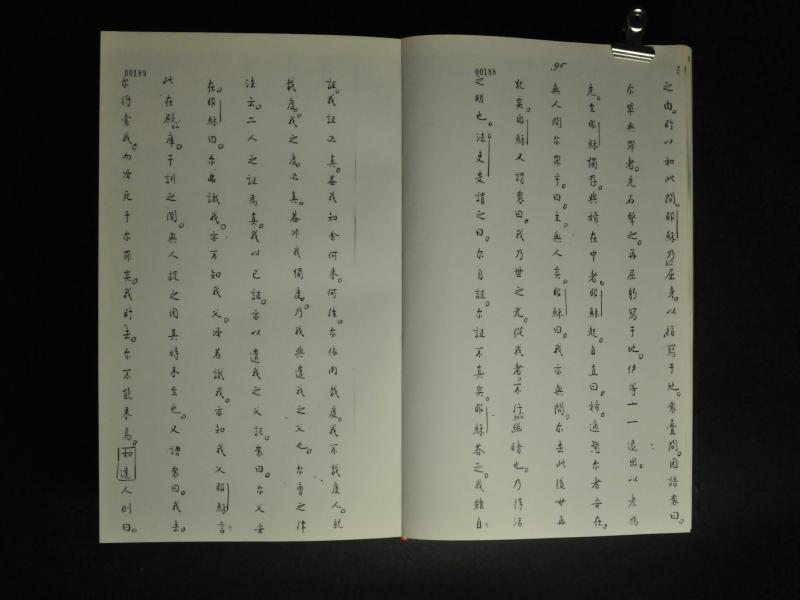 00188
95
之由。所以和此間。耶穌乃屈身。以指寫于地。衆疊問。因語衆曰。
尔單無罪者。先石擊之。再屈躬寫于地。伊等一一退出。以老爲
先。在耶穌獨存。與婦在中者。耶穌起自直曰。婦。過慰尔者安在。
無人問尔罪乎。曰。主。無人矣。耶穌曰。我亦無問。尔去此後毋再
犯矣。耶穌又謂衆曰。我乃世之光。從我者。不行幽暗也。乃得活
之明也。法吏輩謂之曰。尔自証。尔証不真矣。耶穌荅之。我雖自
00189
証。我証必真。盖我知余何來。何往。尔依肉裁度。我不裁度人。就
裁度。我之度必真。盖非我獨度。乃我與遣我之父也。尔會之律
法云。二人之証爲真。我以已証。亦以遣我之父証。衆曰。尔父安
在。耶穌曰。尔弗識我。亦不知我父。冷若識我。亦知我父。耶穌言
此在殿庫。于訓之間。無人捉之。因其時未至也。又語衆曰。我去。
尔將尋我。而冷死于尔罪矣。我所去。尔不能來焉。如達人則曰。